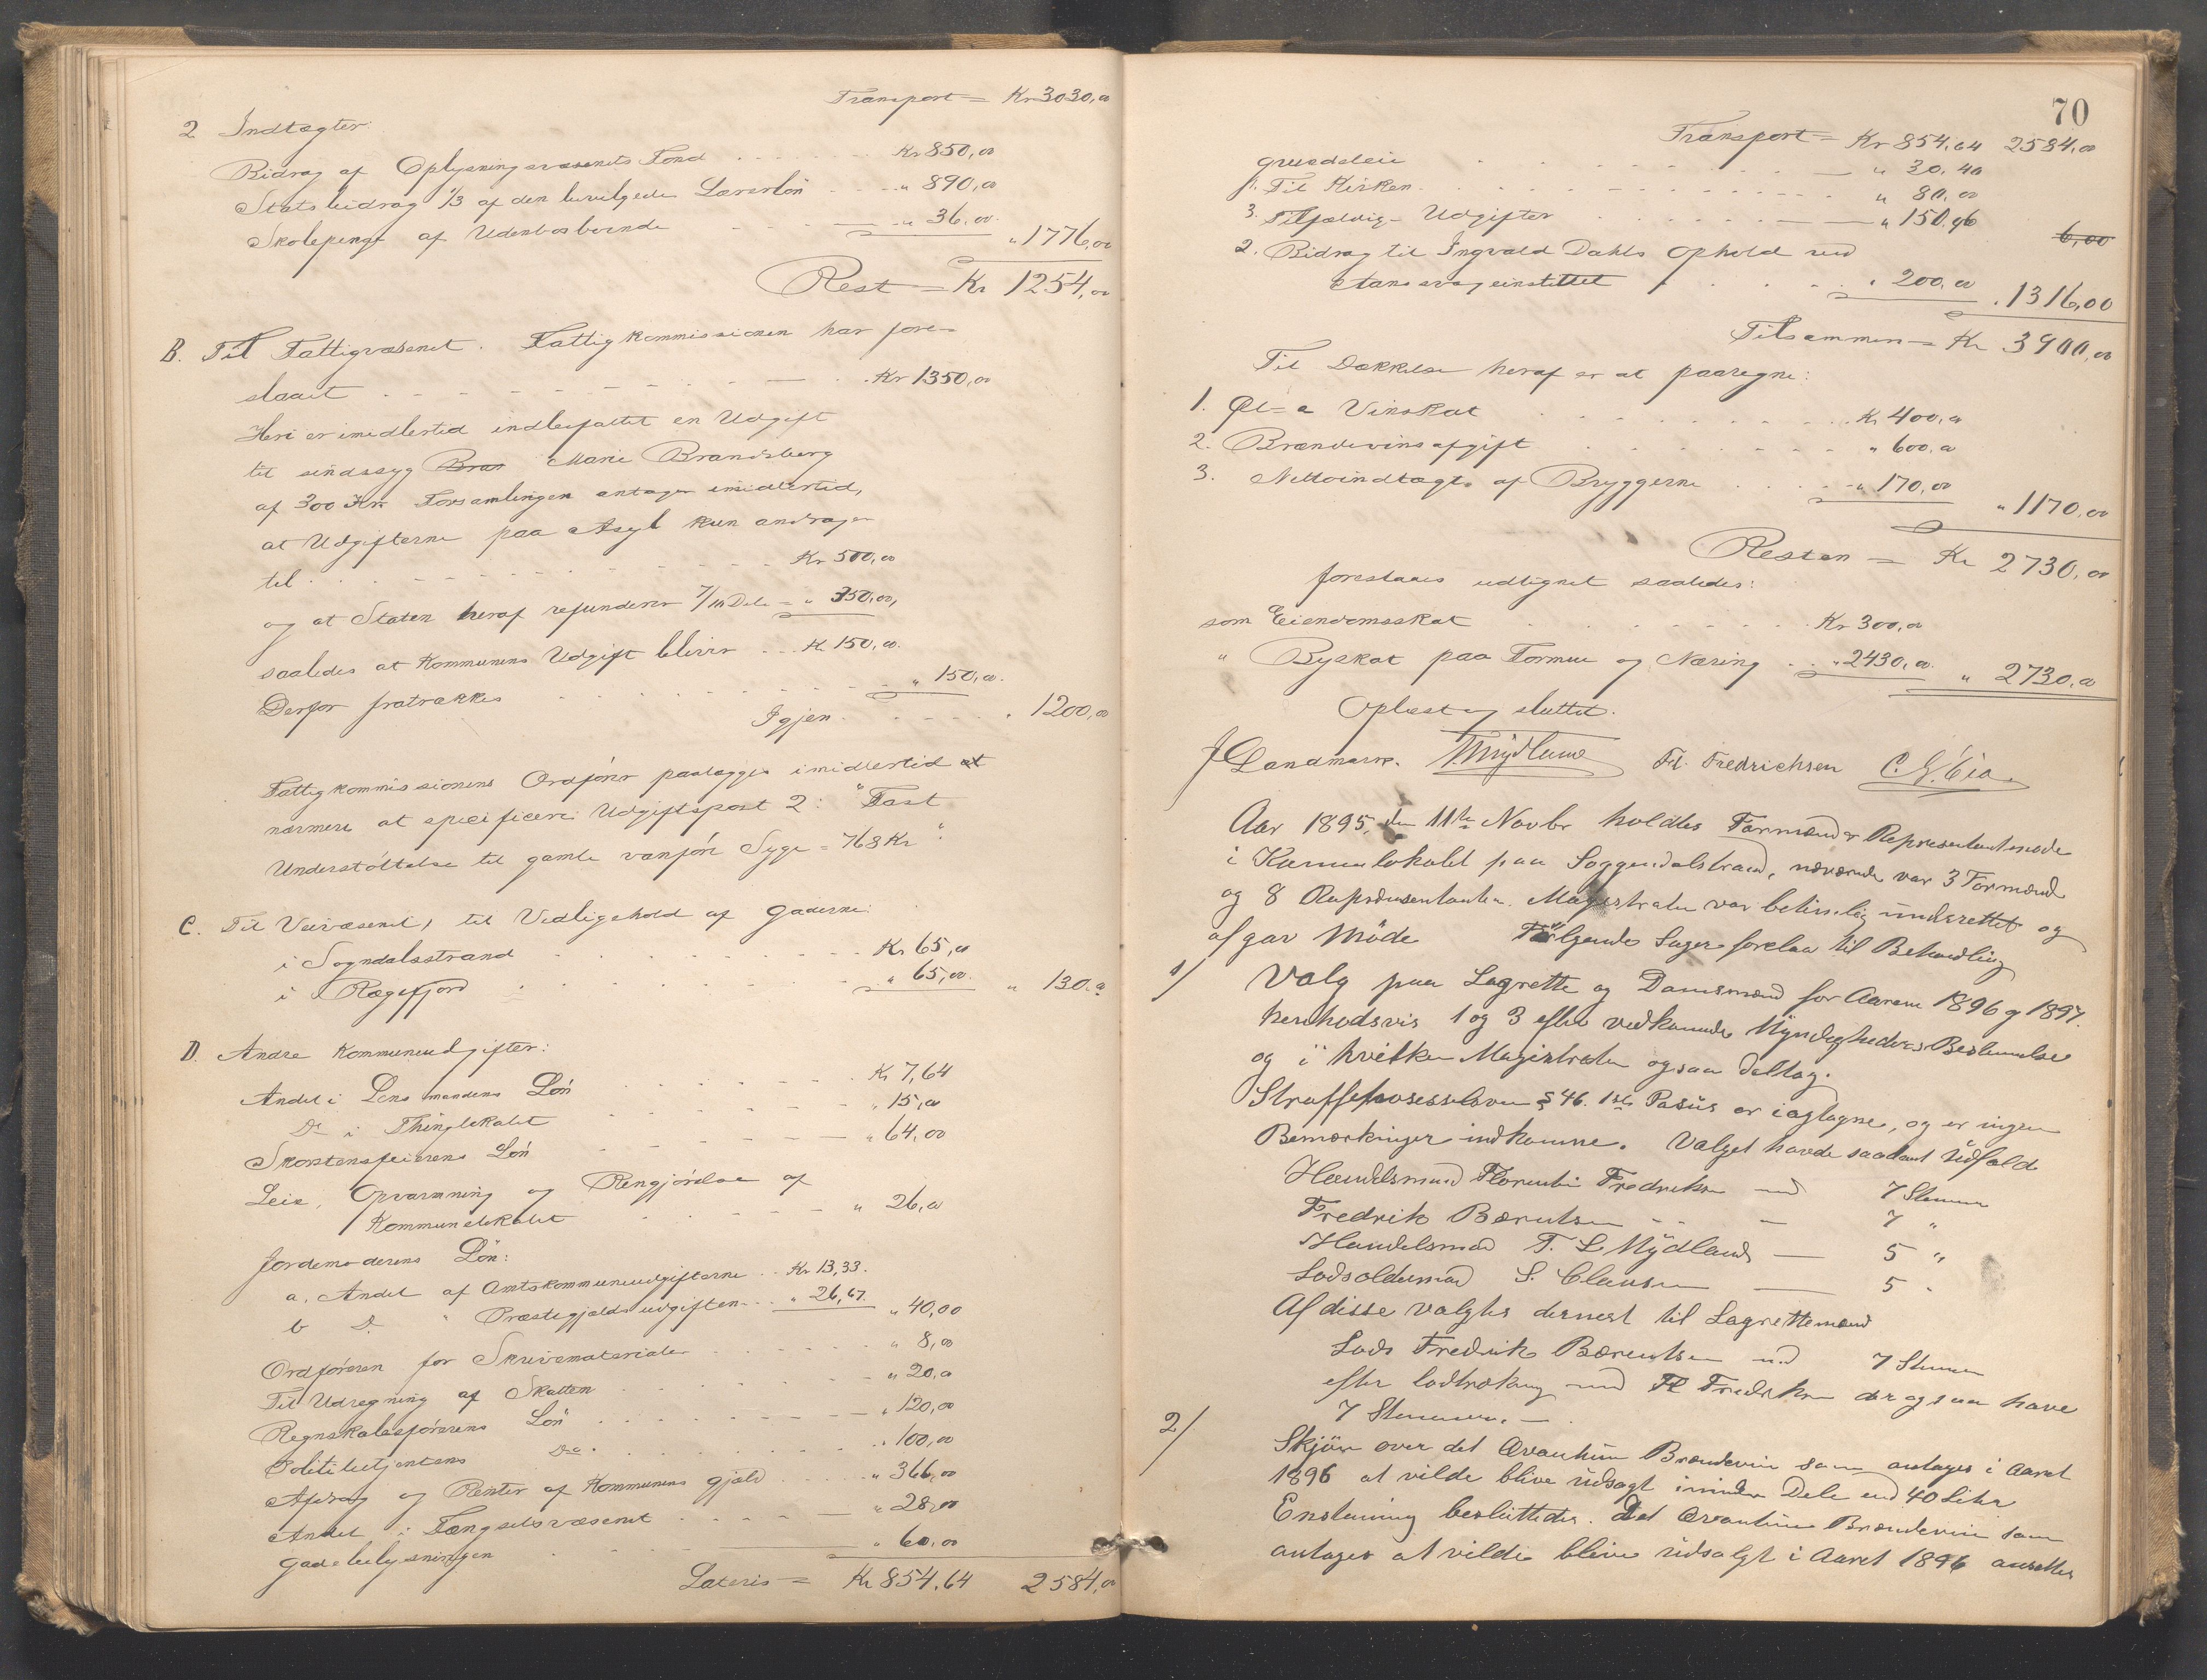 Transport = Kr 3030,00
2 Indtægter:
Bidrag af Oplysningsvæsenets Fond . . . . Kr 850,00
Statsbidrag 1/3 af den bevilgede Lærerløn . . . " 890,00
Skolepenge af Udenbysboende . . . " 36.00. " 1776,00
Rest = Kr 1254,00
B. Til Fattigvæsenet. Fattigkommissionen har fore-
slaaet . . . . . Kr 1350,00
Heri er imidlertid indbefattet en Udgift
til sindssyg Bran Marie Brandsberg
af 300 Kr. Forsamlingen antager imidlertid,
at Udgifterne paa Asyl kun andrager
til . . . . . Kr 500,00
og at Staten heraf refunderer 7/10 Dele = " 350,00,
saaledes at Kommunens Udgift bliver . . . Kr 150,00.
Derfor fratrækkes . . . . . " 150,00.
Igjen . . . . . " 1200,00
Fattigkommissionens Ordfører paalægges imidlertid at
nærmere at specificere Udgiftspost 2: "Fast
Understøttelse til gamle vanføre Syge = 768 Kr".
C. Til Veivæsenet, til Vedligehold af Gaderne:
i Sogndalsstrand . . . . . Kr 65,00
i Rægefjord . . . . . " 65,00. " 130.00
D. Andre Kommuneudgifter:
Andel i Lensmandens Løn . . . . . Kr 7,64
Do i Thinglokalet . . . . . " 15,00
Skorstensfeierens Løn . . . . . " 64,00
Leie, Opvarmning og Rengjørelse af
Kommunelokalet . . . . . " 26,00
Jordemoderens Løn:
a. Andel af Amtskommuneudgifterne . . Kr 13,33.
b Do " Præstegjeldsudgiften . . . " 26,67. " 40,00
Ordføreren for Skrivematerialer . . . . . " 8,00
Til Udregning af Skatten . . . . . " 20,00
Regnskabsførerens Løn . . . . . " 120,00
Politibetjentens Do . . . . . " 100,00
Afdrag og Renter af Kommunens Gjæld . . . . " 366,00
Andel i Fængselsvæsenet . . . . . " 28,00
Gadebelysningen . . . . . " 60,00
Lateris = Kr 854,64 2584,00
70
Transport = Kr 854,64 2584,00
Grundleie . . . . . " 30.40
f. Til Kirken . . . . . " 80,00
3. Tilfældige Udgifter . . . . . " 150,96 6,00
2. Bidrag til Ingvald Dahls Ophold ved
Aandssvageinstitutet . . . . . " 200,00 " 1316,00
Tilsammen = Kr 3900,00
Til Dækkelse heraf er at paaregne:
1. Øl- & Vinskat . . . . . Kr 400,00
2. Brændevinsafgift . . . . . " 600,00
3. Nettoindtægt af Bryggerne . . . . " 170,00 " 1170,00
Resten = Kr 2730,00
foreslaaes udlignet saaledes:
som Eiendomsskat . . . . . Kr 300,00
" Byskat paa Formue og Næring . . " 2430,00. " 2730,00
Oplæst og sluttet.
J Landmark. T Mydland Fl. Fredrichsen C. G. Eia
Aar 1895, den 11te Novbr holdtes Formænd og Representantmøde
i Kommunelokalet paa Soggendalstrand, nærværende var 3 Formænd
og 8 Repræsentanter. Magistraten var betimelig underrettet og
afgav Møde Følgende Sager forelaa til Behandling
1/ Valg paa Lagrette og Domsmænd for Aarene 1896 og 1897.
henholdsvis 1 og 3 efter vedkommende Myndigheders Bestemmelse
og i hvilken Magistraten ogsaa deltog.
Straffeprosessloven § 46. 1ste Passus er iagtagne, og er ingen
Bemærkninger indkomne. Valget havde saadant Udfald
Handelsmand Florentin Fredriksen med 7 Stemmer
Fredrik Bærentsen - - 7 "
Handelsmand T. L Mydland — 5 "
Lodsoldermand S. Clausen — 5 "
Af disse valgtes dernest til Lagrettemænd
Lods Fredrik Bærentsen med 7 Stemmer
efter lodtrækning med Fl Fredriksen der ogsaa havde
7 Stemmer. —
2/ Skjøn over det Qvantum Brændevin som antages i Aaret
1896 at vilde blive udsagt i mindre Dele end 40 Liter
Enstemmig besluttedes. Det Qvantum Brændevin som
antages at vilde blive udsalgt i Aaret 1896 ansættes